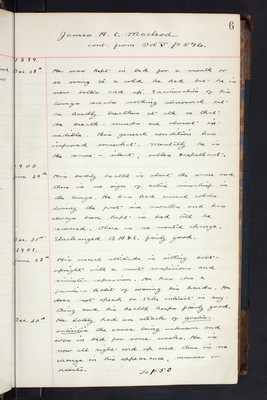 6
James H. C. Macleod
cont. from Vol V p 576.
1899
Dec. 28th He was kept in bed for a month or
so owing to a cold he had but he is
now better and up. Examination of his
lungs reveals nothing abnormal but
he hardly breathes at all so that
the breath sounds are almost in-
audible. His general condition has
improved somewhat. Mentally he is
the same - silent,
1900
June 29th His bodily health is about the same and
there is no sign of active mischief in
the lungs. He has had much
during the past six months and has
always been kept in bed till he
recovered. There is no mental change.
Dec. 31st Unchanged. B.H. fairly good.
1901
June 28th His usual attitude is sitting bolt-
upright with a most suspicious and
expression. He has also a
peculiar habit of waving his hands. He
does not speak or take interest in any-
thing and his health keeps fairly good.
Dec. 30th He lately had an attack of gastro-
enteritis the cause being unknown and
was in bed for some weeks. He is
now all right and up and there is no
change in his appearance, manner or
habits.
To p 50